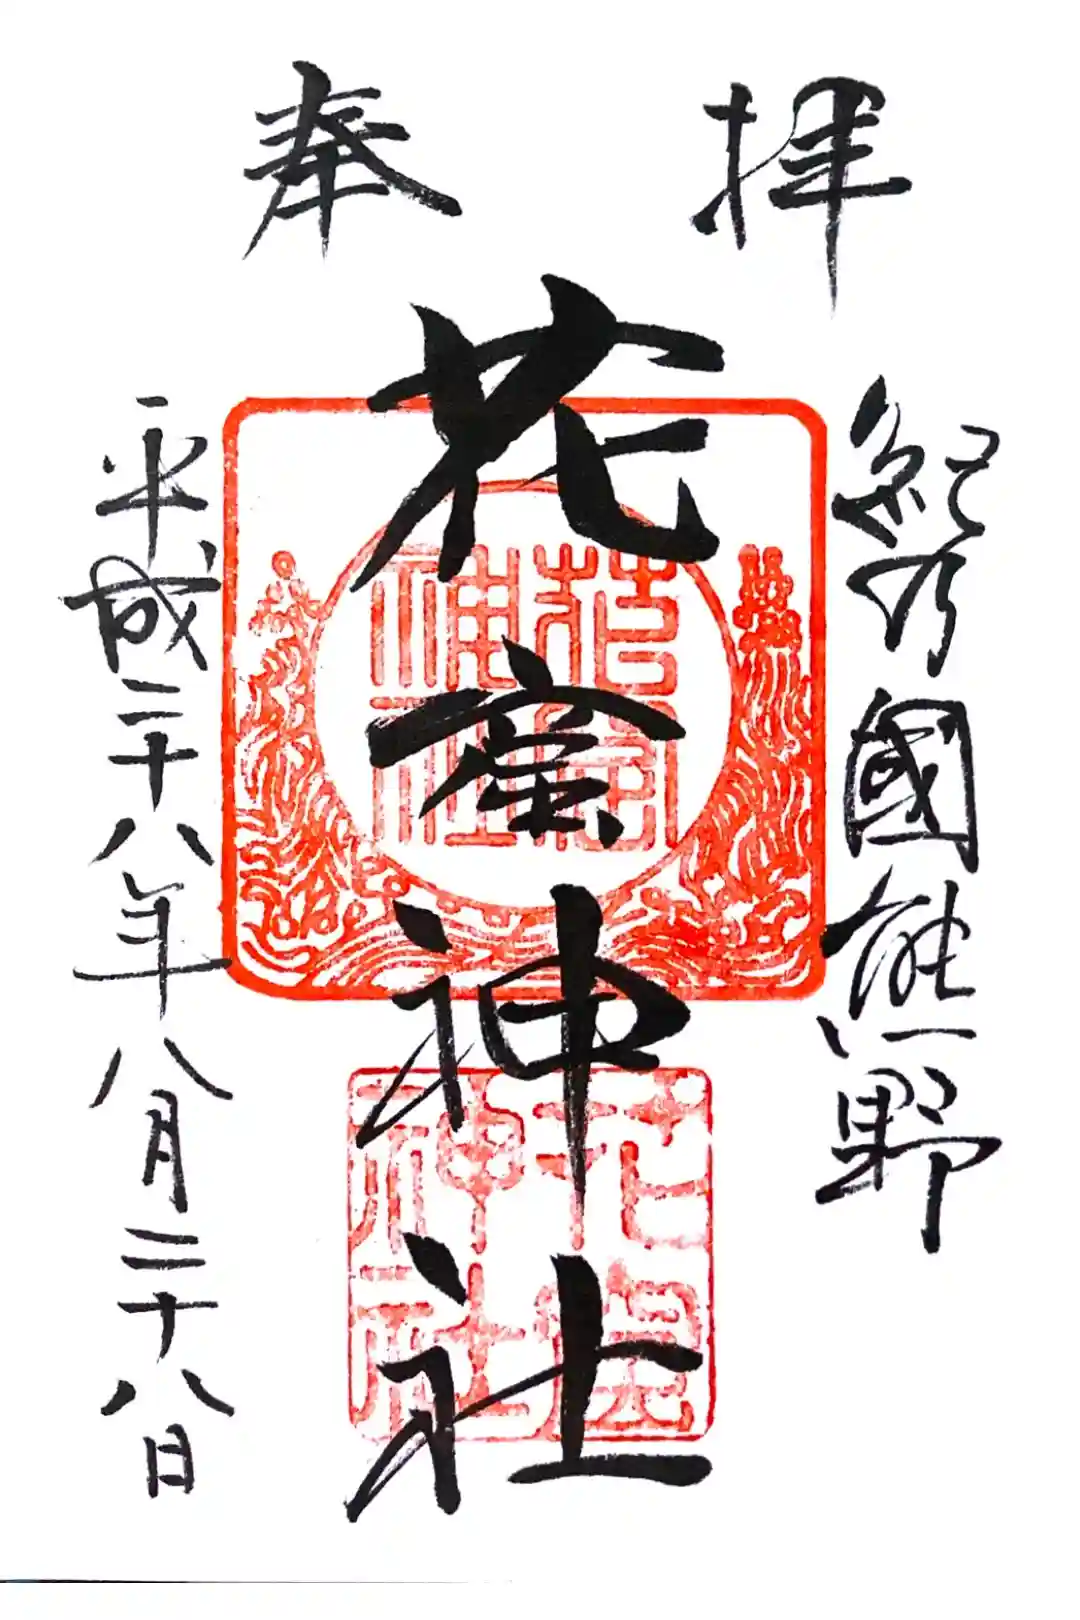 奉拝
紀乃國熊野
花窟神社
平成二十八年八月二十八日
花窟神社
花窟神社